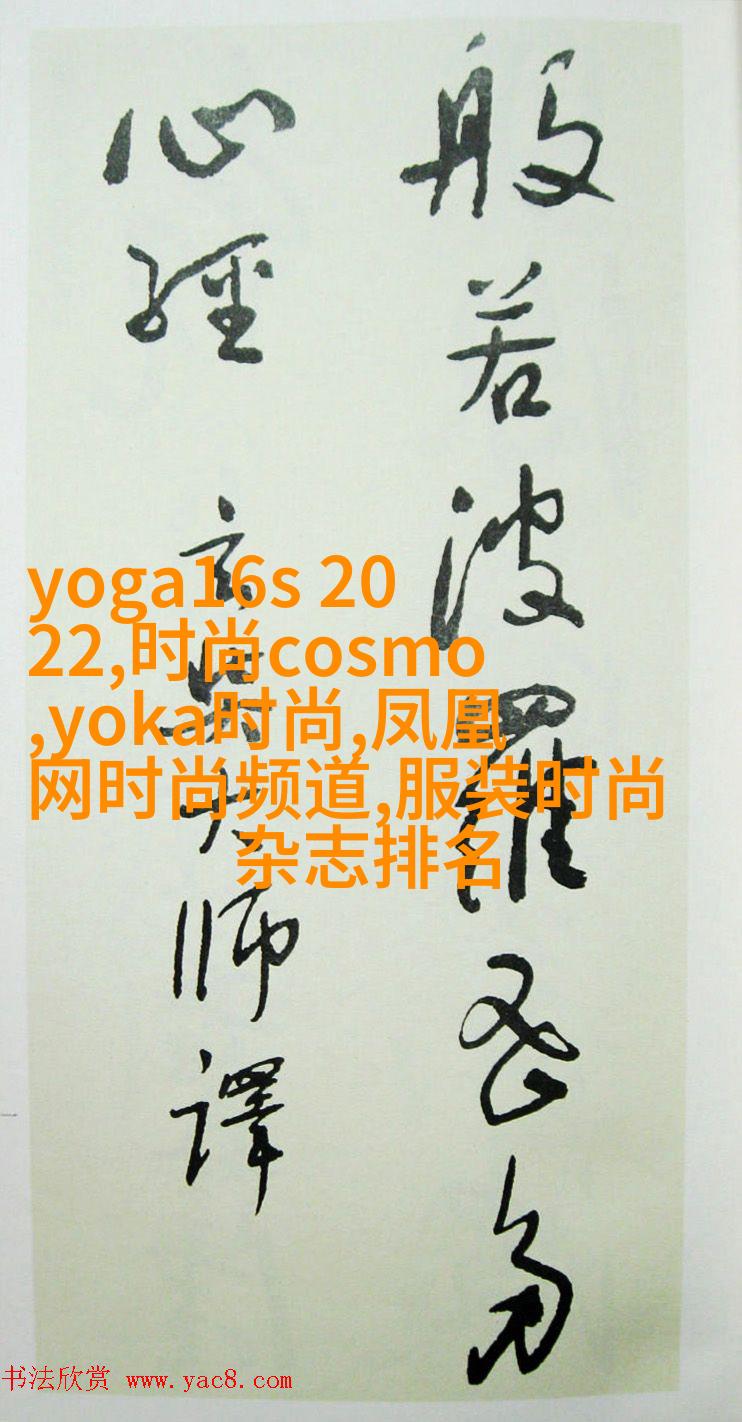 般若波羅蜜多
心經 玄奘大师譯
yoga16s 20
22,时尚cosmo
,yoka时尚,凤凰
网时尚频道,服装时尚
杂志排名
书法欣赏 www.yac8.com